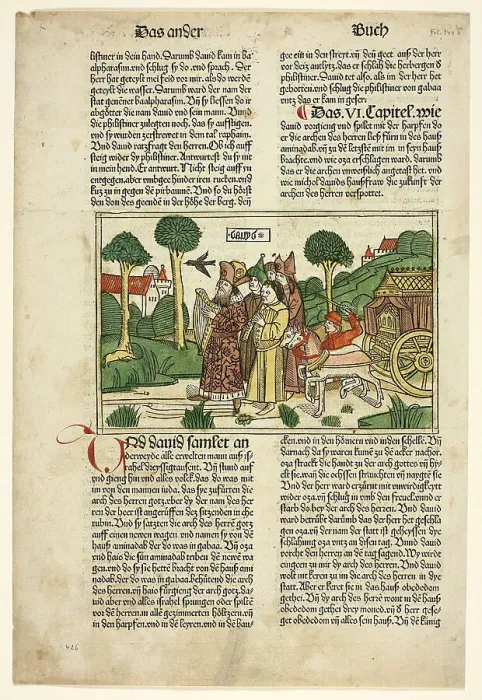 Das ander
Buch
listiner in dein hand. Darumb dauid kam in ba⸗
alpharasim. vnd schlug sy do. vnd sprach. Der
herr hat geteylt mein feind vor mir. als do werdē
geteylt die wasser. Darumb ward der nam der
stat genēnet baalpharasim. Vn̄ sy liessen do ir
abgötter die nam dauid vnd sein mann. Vnnd
die philistiner zulegten noch. das sy aufstigen.
vnd sy wurden zerstrewet in dem tal raphaim.
Vnd dauid ratzfragt den herren. Ob ich auff
steig wider dy philistiner. Antwurtest du sy nit
in mein hend. Er antwurt. Nicht steig auff zu
entgegen. aber vmbgee hinder iren rucken. vnd
kuz zu in gegen dē pirbaumē. Vnd so du hörst
den don des geenden in der höhe der berg. deñ
gee ein in den streyt. vn̄ deñ geet auß der herr
vor deiz antlytz. das er schlah die herbergen d̄
philistiner. Dauid tet also. als im der herr het
gebotten. vnd schlug die philistiner von gabaa
vntz das er kam in geser.
Das .VI. Capitel. wie
dauid vorgieng vnd spilet mit der harpfen do
er die archen des herren ließ füren in des hauß
aminadab. vn̄ zu dē letzstē mit im in seyn hauß
brachte. vnd wie oza erschlagen ward. darumb
das er die archen vnweßlich angetastet het. vnd
wie michol dauids haußfraw die zukunft der
archen des herren verspottet.
Vnd dauid samlet an
derweyde alle erwelten mann auß is⸗
rahel dreyssigtausent. Vn̄ dauid stund auf
vnd gieng hin vnd alles volck. das do was mit
im von den mannen iuda. das sye zufürten die
arch des herren gotz. vber dy der nam des her
ren der heer ist angerüffen dez sitzenden in che
rubin. Vnd sy satzten die arch des herrē gotz
auff einen newen wagen vnd namen sy von dē
hauß aminadab der do was in gabaa. Vn̄ oza
vnd haio die sün aminadab triben dē newē wa
gen. vnd do sy sie hettē bracht von dē hauß ami
nadab. der do was in gabaa. behütend die arch
des herren. vn̄ haio fürgieng der arch gotz. da⸗
uid aber vnd alles israhel sprungen oder spiltē
vor dē herren. in allē gezimmerten höltzern. vn̄
in den harpfen. vnd in dē leyren. vnd in dē bau⸗
cken. vnd in den hörnern vnd in den schelle. Vn̄
darnach da sy waren kumē zu dē acker nachor.
oza strackt die handt zu der arch gottes vn̄ hy⸗
elt sie. wañ die ochssen struuchten vn̄ naygtē sie
Vnd der herr ward erzürnt mit vnwirdigkeyt
wider oza. vn̄ schlug in vmb den freuel. vnnd er
starb do bey der arch des herren. Vnd dauid
ward betrübt darumb das der herr het geschla
gen oza. vn̄ der nam der statt ist geheyssen dye
schlahung oza vntz an disen tag. Vnnd dauid
vorcht den herren an dē tag sagend. Wy wirde
eingeen zu mir dy arch des herren. Vnnd dauid
wolt nit keren zu im die arch des herren in dye
statt. Aber er keret sie in das hauß obededom
gethei. Vn̄ dy arch des herrē wont in dē hauß
obededom gethei drey moned. vn̄ d̄ herr gese⸗
get obededom vn̄ alles sein hauß. Vn̄ dē künig
426